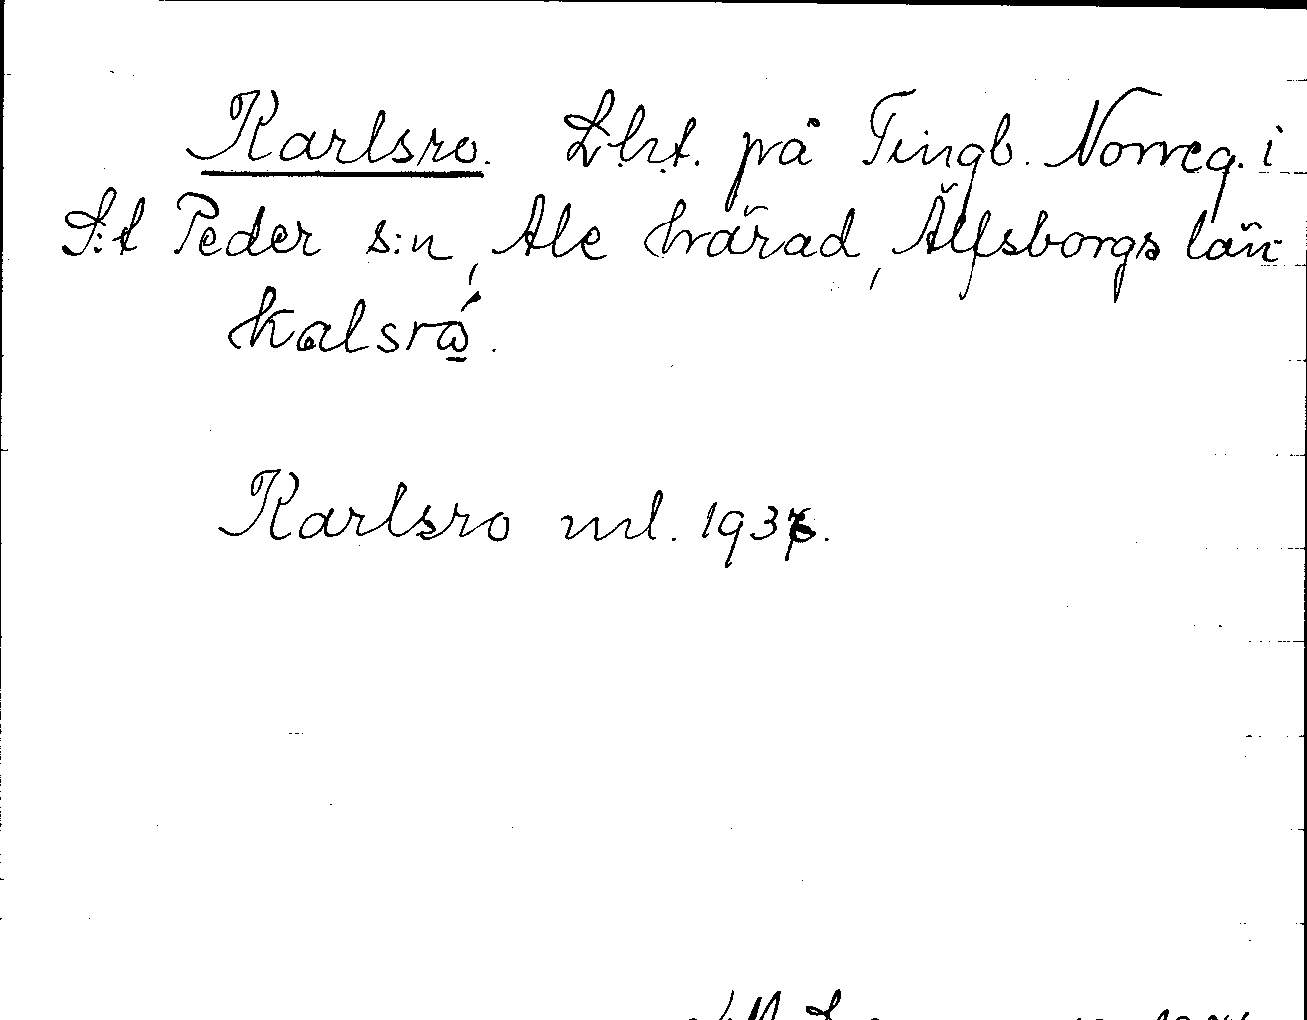 Karlsro. L.h.t. på Tingb. Norreg. i
S:t Peder s:n, Ale härad, Älfsborgs län
kalsró̱.
Karlsro ml. 1936.